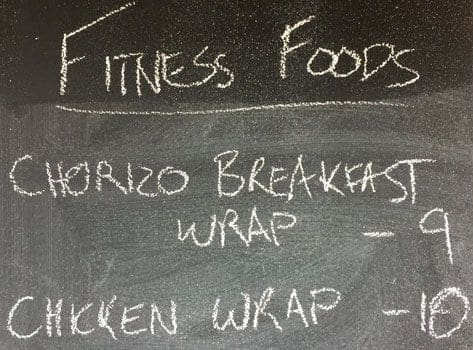 FITNESS FOODS
CHORIZO BREAKFAST
WRAP - 9
CHICKEN WRAP - 10